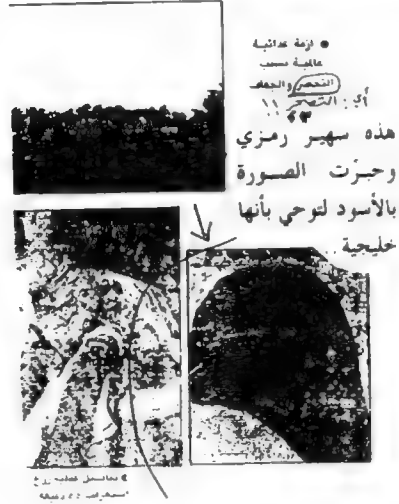 ● ازمة غذائية
عالمية بسبب
التصحر والجفاف
أي : التصحر !!
هذه سهير رمزي
وحبرت الصورة
بالأسود لتوحي بأنها
خليجية .